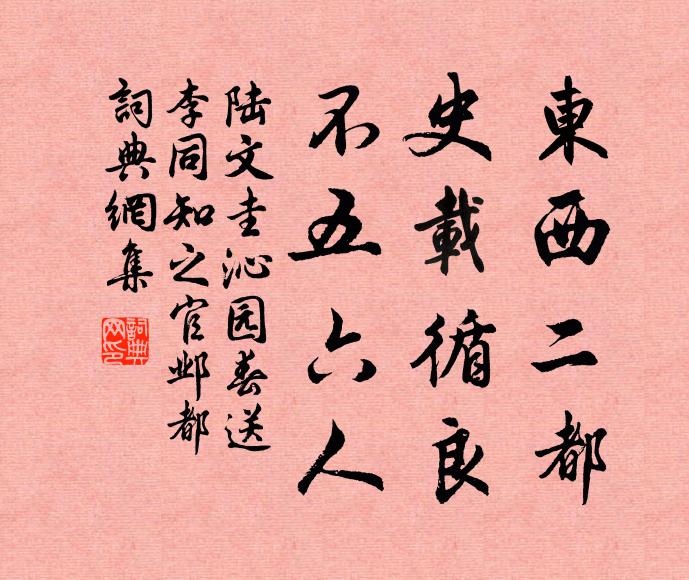 東西二都
史載循良
不五六人
陆文圭沁园春送
李同知之官邺都
詞典網集
詞典網印